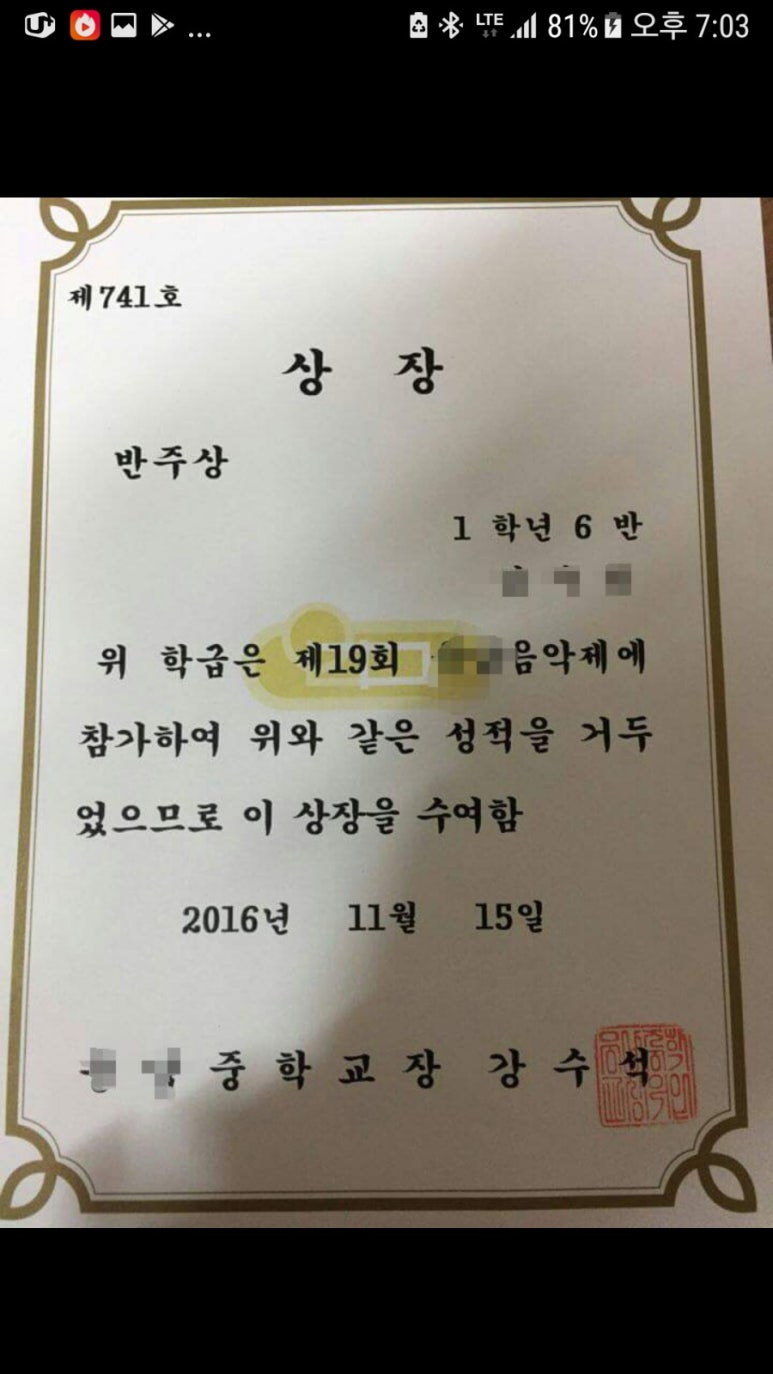 ... LTE 81% 오후 7:03
제741호
상 장
반주상
1 학년 6 반
위 학급은 제19회 음악제에
참가하여 위와 같은 성적을 거두
었으므로 이 상장을 수여함
2016년 11월 15일
중 학 교 장 강 수 석